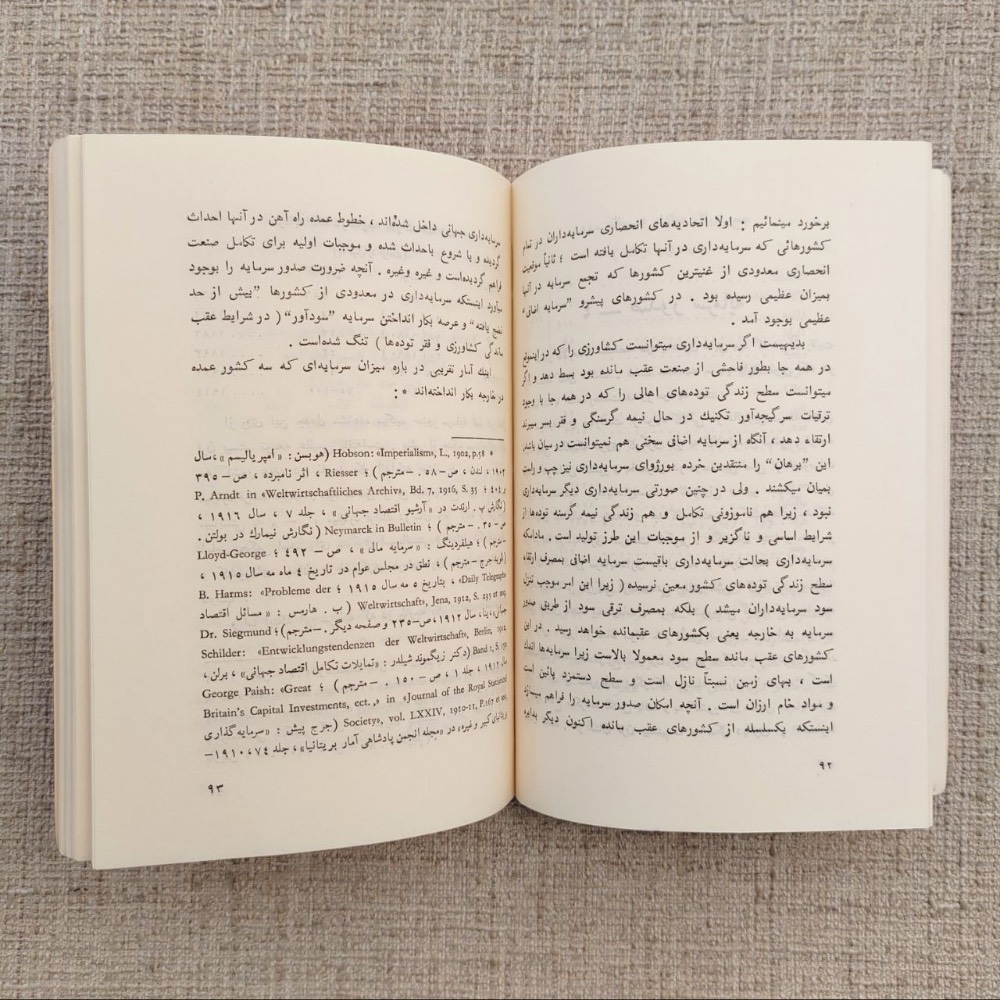 برخورد مینمائیم : اولا اتحادیه‌های انحصاری سرمایه‌داران در تمام
کشورهائی که سرمایه‌داری در آنها تکامل یافته است ؛ ثانیاً موقعیت
انحصاری معدودی از غنیترین کشورها که تجمع سرمایه در آنها
بمیزان عظیمی رسیده بود . در کشورهای پیشرو ”سرمایه اضافی“
عظیمی بوجود آمد .
بدیهیست اگر سرمایه‌داری میتوانست کشاورزی را که در اینموقع
در همه جا بطور فاحشی از صنعت عقب مانده بود بسط دهد و اگر
میتوانست سطح زندگی توده‌های اهالی را که در همه جا با وجود
ترقیات سرگیجه‌آور تکنیك در حال نیمه گرسنگی و فقر بسر میبرند
ارتقاء دهد ، آنگاه از سرمایه اضافی سخنی هم نمیتوانست در میان باشد.
این ”برهان“ را منتقدین خرده بورژوای سرمایه‌داری نیز چپ و راست
بمیان میکشند . ولی در چنین صورتی سرمایه‌داری دیگر سرمایه‌داری
نبود ، زیرا هم ناموزونی تکامل و هم زندگی نیمه گرسنه توده‌ها از
شرایط اساسی و ناگزیر و از موجبات این طرز تولید است . مادامکه
سرمایه‌داری بحالت سرمایه‌داری باقیست سرمایه اضافی بمصرف ارتقاء
سطح زندگی توده‌های کشور معین نرسیده ( زیرا این امر موجب تنزل
سود سرمایه‌داران میشد ) بلکه بمصرف ترقی سود از طریق صدور
سرمایه به خارجه یعنی بکشورهای عقبمانده خواهد رسید . در این
کشورهای عقب مانده سطح سود معمولا بالاست زیرا سرمایه‌ها اندك
است ، بهای زمین نسبتاً نازل است و سطح دستمزد پائین است
و مواد خام ارزان است . آنچه امکان صدور سرمایه را فراهم میسازد
اینستکه یکسلسله از کشورهای عقب مانده اکنون دیگر بدایره
۹۲
سرمایه‌داری جهانی داخل شده‌اند ، خطوط عمده راه آهن در آنها احداث
گردیده و یا شروع باحداث شده و موجبات اولیه برای تکامل صنعت
فراهم گردیده‌است و غیره وغیره . آنچه ضرورت صدور سرمایه را بوجود
میآورد اینستکه سرمایه‌داری در معدودی از کشورها ”بیش از حد
نضج یافته“ و عرصه بکار انداختن سرمایه ”سودآور“ ( در شرایط عقب
ماندگی کشاورزی و فقر توده‌ها ) تنگ شده‌است .
اینك آمار تقریبی در باره میزان سرمایه‌ای که سه کشور عمده
در خارجه بکار انداخته‌اند * :
* Hobson: «Imperialism», L., 1902, p.58 (هوبسن : « امپریالیسم » ،سال
۱۹۰۲ ، لندن ، ص – ۵۸ . – مترجم ) ؛ Riesser ، اثر نامبرده ، ص – ۳۹۵
و ۴۰۴ ؛ P. Arndt in «Weltwirtschaftliches Archiv», Bd. 7, 1916, S. 35
(نگارش پ . ارندت در « آرشیو اقتصاد جهانی » ، جلد ۷ ، سال ۱۹۱۶ ،
ص – ۳۵ . – مترجم ) ؛ Neymarck in Bulletin ( نگارش نیمارك در بولتن .
– مترجم ) ؛ هیلفردینگ : « سرمایه مالی » ، ص – ۴۹۲ ؛ Lloyd-George
(لویدجرج – مترجم) ، نطق در مجلس عوام در تاریخ ۴ ماه مه سال ۱۹۱۵ ،
«Daily Telegraph» ، بتاریخ ۵ مه سال ۱۹۱۵ ؛ B. Harms: «Probleme der
Weltwirtschaft», Jena, 1912, S. 235 et seq. (ب . هارمس : « مسائل اقتصاد
جهانی»،ینا، سال ۱۹۱۲،ص–۲۳۵ و صفحه دیگر . –مترجم)؛ Dr. Siegmund
Schilder: «Entwicklungstendenzen der Weltwirtschaft», Berlin, 1912
Band 1, S. 150 (دکتر زیگموند شیلدر : «تمایلات تکامل اقتصاد جهانی» ، برلن ،
سال ۱۹۱۲ ، جلد ۱ ، ص – ۱۵۰ . – مترجم ) ؛ George Paish: «Great
Britain's Capital Investments, ect.,» in «Journal of the Royal Statistical
Society», vol. LXXIV, 1910-11, P.167 et seq. (جرج پیش : « سرمایه گذاری
بریتانیای کبیر و غیره» در «مجله انجمن پادشاهی آمار بریتانیا» ، جلد ۷۴ ، ۱۹۱۰–
۹۳